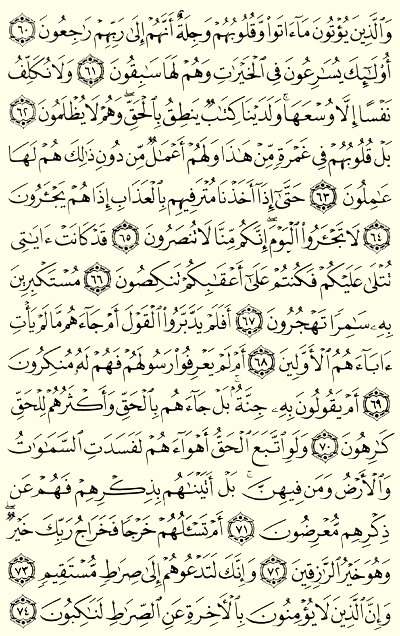 وَٱلَّذِينَ يُؤْتُونَ مَآ ءَاتَوا۟ وَّقُلُوبُهُمْ وَجِلَةٌ أَنَّهُمْ إِلَىٰ رَبِّهِمْ رَٰجِعُونَ ﴿٦٠﴾
أُو۟لَٰٓئِكَ يُسَٰرِعُونَ فِى ٱلْخَيْرَٰتِ وَهُمْ لَهَا سَٰبِقُونَ ﴿٦١﴾ وَلَا نُكَلِّفُ
نَفْسًا إِلَّا وُسْعَهَا ۖ وَلَدَيْنَا كِتَٰبٌ يَنطِقُ بِٱلْحَقِّ ۚ وَهُمْ لَا يُظْلَمُونَ ﴿٦٢﴾
بَلْ قُلُوبُهُمْ فِى غَمْرَةٍ مِّنْ هَٰذَا وَلَهُمْ أَعْمَٰلٌ مِّن دُونِ ذَٰلِكَ هُمْ لَهَا
عَٰمِلُونَ ﴿٦٣﴾ حَتَّىٰٓ إِذَآ أَخَذْنَا مُتْرَفِيهِم بِٱلْعَذَابِ إِذَا هُمْ يَجْـَٔرُونَ
﴿٦٤﴾ لَا تَجْـَٔرُوا۟ ٱلْيَوْمَ ۖ إِنَّكُم مِّنَّا لَا تُنصَرُونَ ﴿٦٥﴾ قَدْ كَانَتْ ءَايَٰتِى
تُتْلَىٰ عَلَيْكُمْ فَكُنتُمْ عَلَىٰٓ أَعْقَٰبِكُمْ تَنكِصُونَ ﴿٦٦﴾ مُسْتَكْبِرِينَ
بِهِۦ سَٰمِرًا تَهْجُرُونَ ﴿٦٧﴾ أَفَلَمْ يَدَّبَّرُوا۟ ٱلْقَوْلَ أَمْ جَآءَهُم مَّا لَمْ يَأْتِ
ءَابَآءَهُمُ ٱلْأَوَّلِينَ ﴿٦٨﴾ أَمْ لَمْ يَعْرِفُوا۟ رَسُولَهُمْ فَهُمْ لَهُۥ مُنكِرُونَ
﴿٦٩﴾ أَمْ يَقُولُونَ بِهِۦ جِنَّةٌۢ ۚ بَلْ جَآءَهُم بِٱلْحَقِّ وَأَكْثَرُهُمْ لِلْحَقِّ
كَٰرِهُونَ ﴿٧٠﴾ وَلَوِ ٱتَّبَعَ ٱلْحَقُّ أَهْوَآءَهُمْ لَفَسَدَتِ ٱلسَّمَٰوَٰتُ
وَٱلْأَرْضُ وَمَن فِيهِنَّ ۚ بَلْ أَتَيْنَٰهُم بِذِكْرِهِمْ فَهُمْ عَن
ذِكْرِهِم مُّعْرِضُونَ ﴿٧١﴾ أَمْ تَسْـَٔلُهُمْ خَرْجًا فَخَرَاجُ رَبِّكَ خَيْرٌ ۖ
وَهُوَ خَيْرُ ٱلرَّٰزِقِينَ ﴿٧٢﴾ وَإِنَّكَ لَتَدْعُوهُمْ إِلَىٰ صِرَٰطٍ مُّسْتَقِيمٍ ﴿٧٣﴾
وَإِنَّ ٱلَّذِينَ لَا يُؤْمِنُونَ بِٱلْأَخِرَةِ عَنِ ٱلصِّرَٰطِ لَنَٰكِبُونَ ﴿٧٤﴾